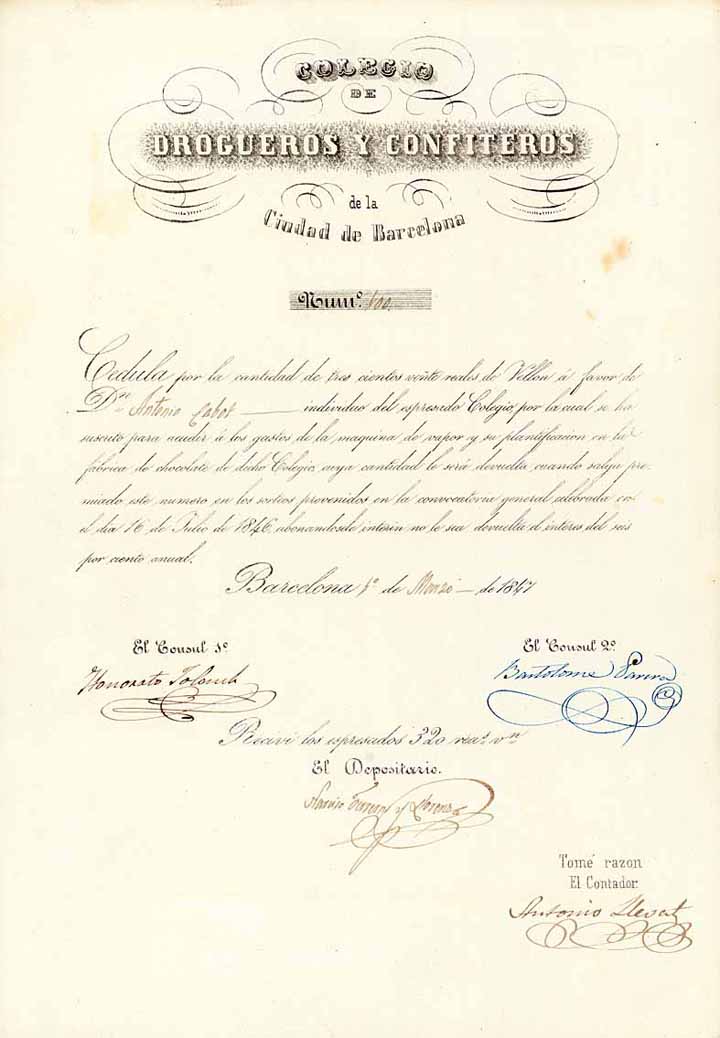 COLEGIO
DE
DROGUEROS Y CONFITEROS
de la
Ciudad de Barcelona
Num.º 100
Cedula por la cantidad de tres cientos veinte reales de Vellon á favor de
D.n Antonio Cabot individuo del espresado Colegio, por la cual se ha
suscrito para acudir á los gastos de la maquina de vapor y su plantificacion en la
fabrica de chocolate de dicho Colegio, cuya cantidad le será devuelta, cuando salga pre-
miado este numero en los sorteos prevenidos en la convocatoria general celebrada en
el dia 16 de Julio de 1846, abonandosele interin no le sea devuelta el interes del seis
por ciento anual.
Barcelona 1º de Marzo de 1847
El Consul 1º El Consul 2º
Honorato Bartolome
Recivi los espresados 320 rea.s v.n
El Depositario.
Narciso y Llorens
Tomé razon
El Contador
Antonio Llevat